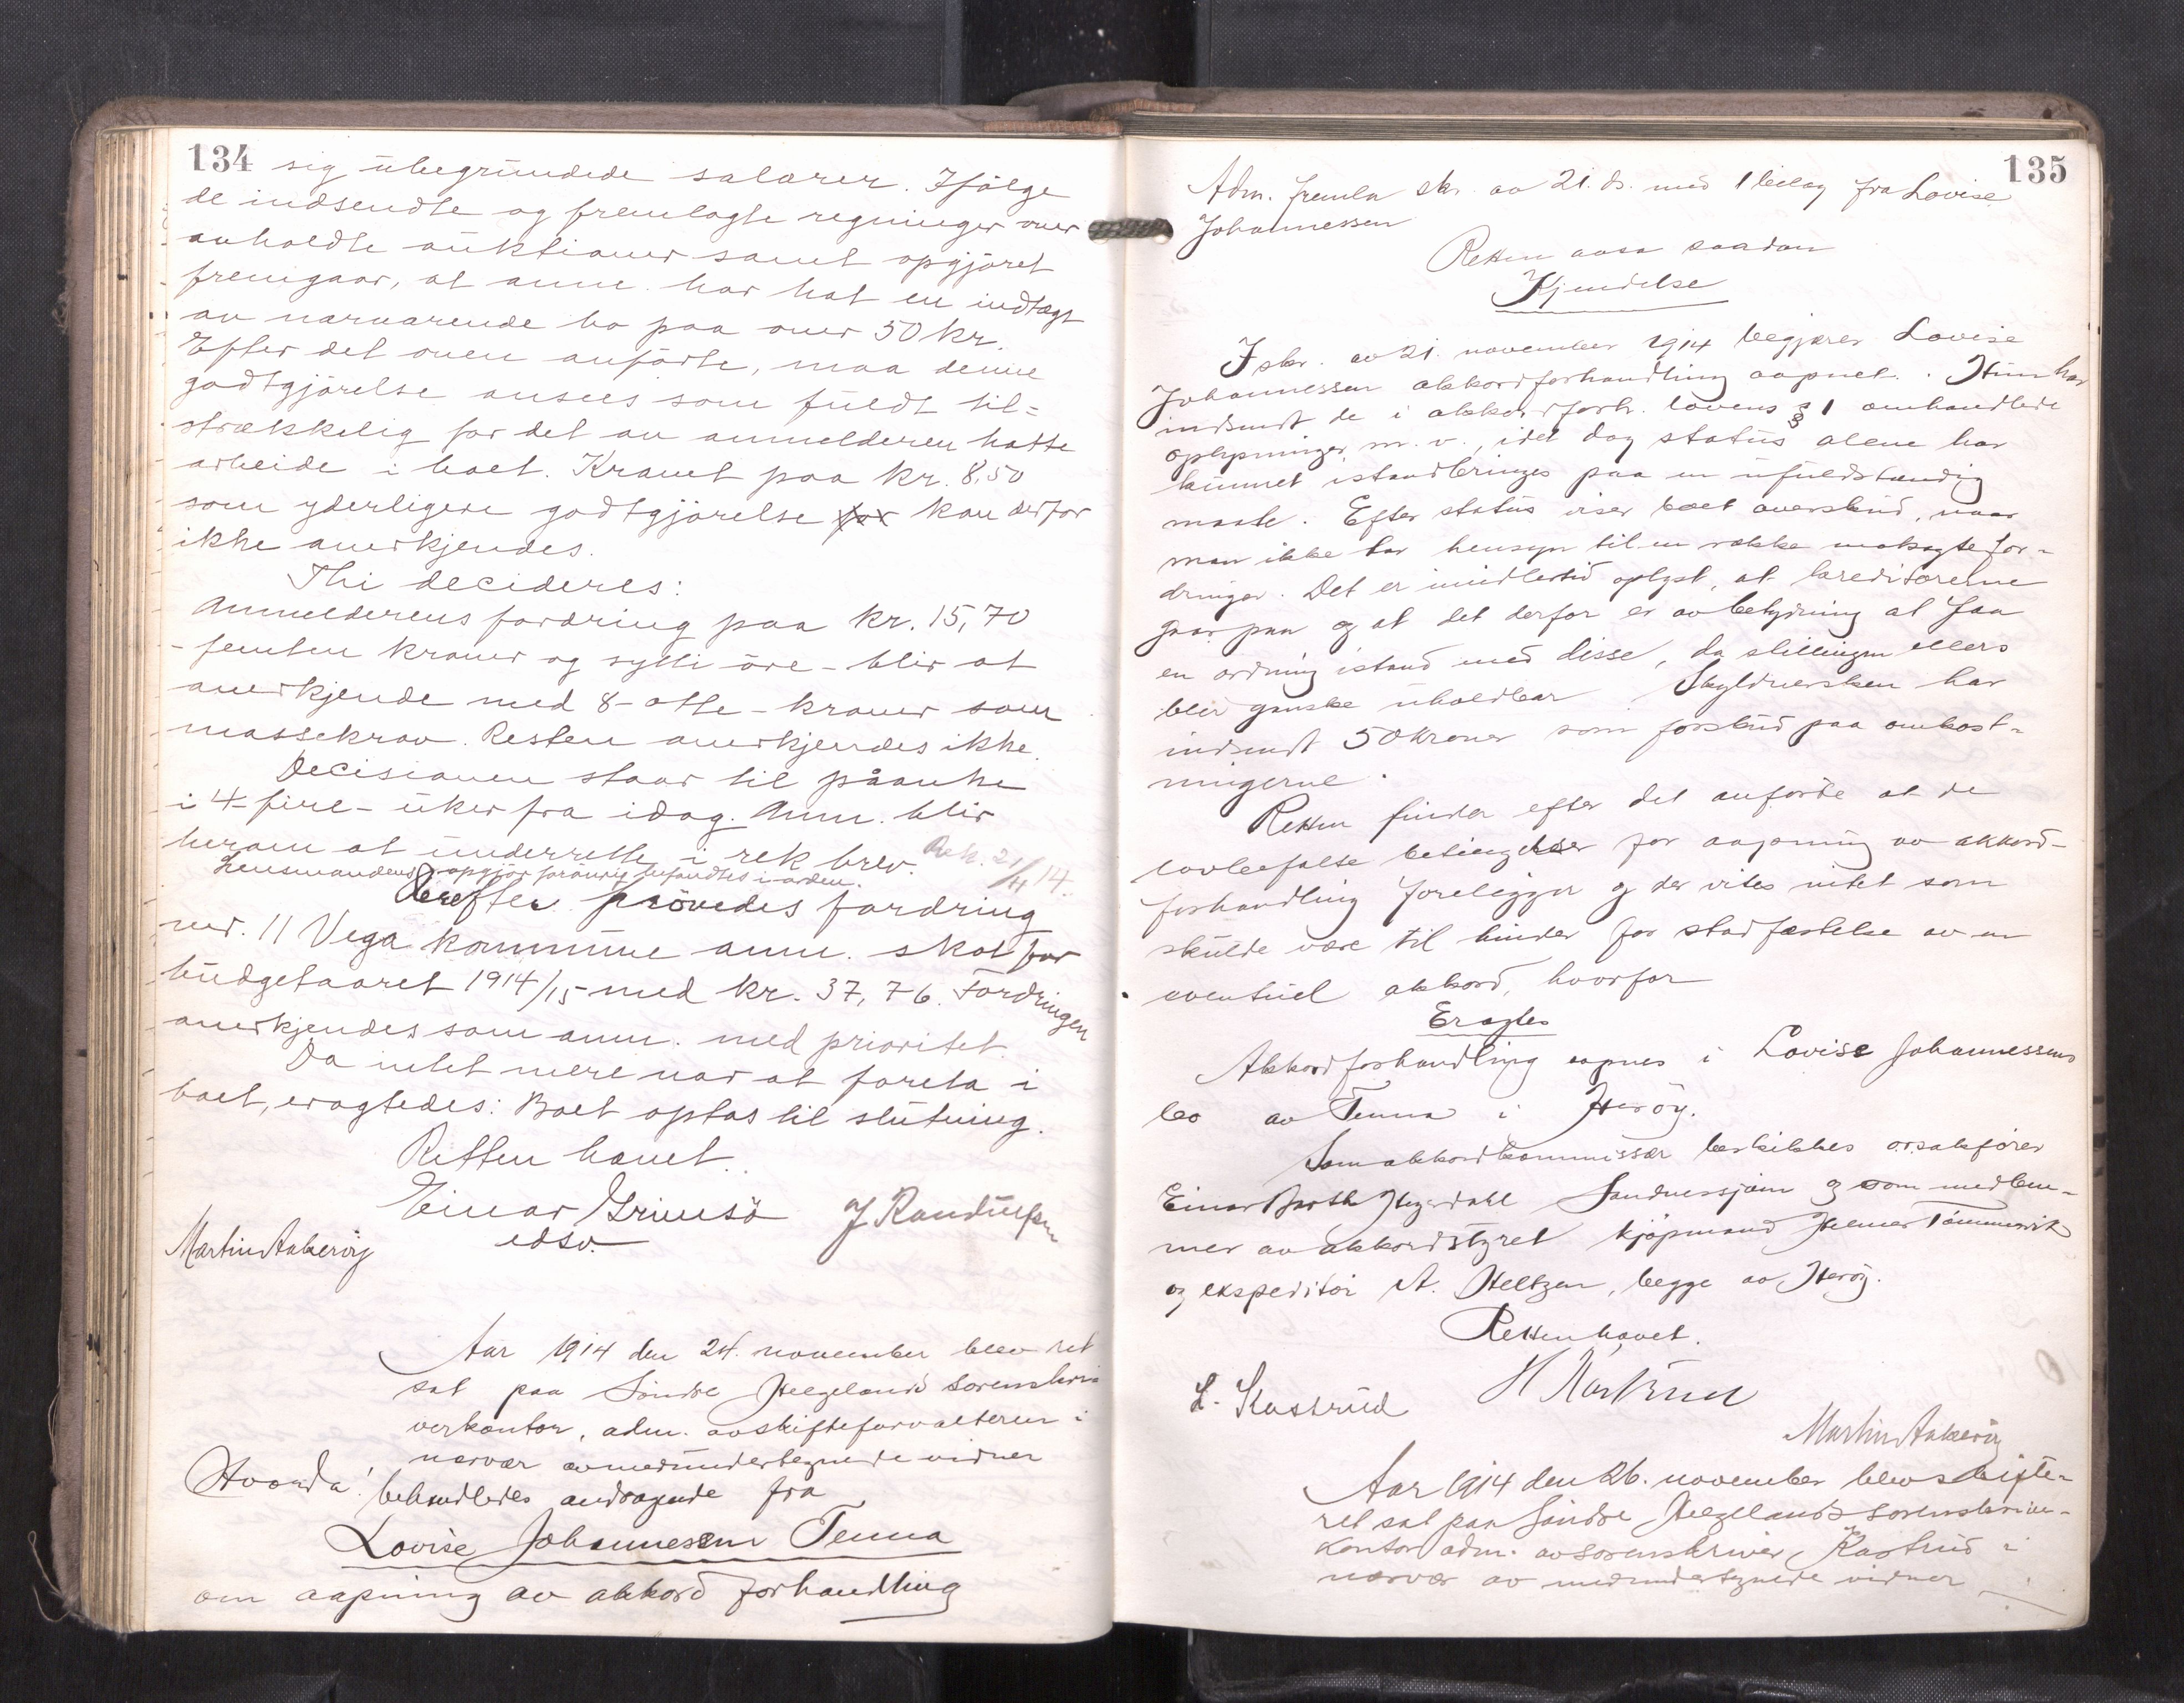 134
sig ubegrundede salærer. Ifölge
de indsendte og fremlagte regninger over
avholdte auktioner samt opgjöret
fremgaar, at anm. har hat en indtægt
av nærværende bo paa over 50 kr.
Efter det oven anförte, maa denne
godtgjörelse ansees som fuldt til-
strækkelig for det av anmelderen hatte
arbeide i boet. Kravet paa kr. 8,50
som yderligere godtgjörelse for kan derfor
ikke anerkjendes.
Thi decideres:
Anmelderens fordring paa kr. 15,70
- femten kroner og sytti öre - blir at
anerkjende med 8 - otte - kroner som
massekrav. Resten anerkjendes ikke.
Decisionen staar til påanke
i 4 - fire - uker fra idag. Anm. blir
herom at underrette i rek brev. Rek. 21/11 14.
Lensmandens opgjör forövrig befandtes i orden.
Derefter prövedes fordring
nr. 11 Vega kommune anm. skat for
budgetaaret 1914/15 med kr. 37,76. Fordringen
anerkjendes som anm. med prioritet.
Da intet mere var at foreta i
boet, eragtedes: Boet optas til slutning.
Retten hævet.
Einar Grimsö J Randulfsen
edsv.
Martin Aakeröy
Aar 1914 den 24. november blev ret
sat paa Söndre Helgeland sorenskri-
verkontor, adm. av skifteforvalteren i
nærvær av medundertegnede vidner
Hvorda! behandledes andragende fra
Lovise Johannessen Tenna
om aapning av akkordforhandling
135
Adm. fremla skr. av 21. ds. med 1 bilag fra Lovise
Johannessen
Retten avsa saadan
Kjendelse
I skr. av 21. november 1914 begjærer Lovise
Johannessen akkordforhandling aapnet. Hun har
indsendt de i akkordforh. lovens § 1 omhandlede
oplysninger m. v., idet dog status alene har
kunnet istandbringes paa en ufuldstændig
maate. Efter status viser boet overskud, naar
man ikke tar hensyn til en række usikre for-
dringer. Det er imidlertid oplyst, at kreditorerne
gaar paa og at det derfor er av betydning at faa
en ordning istand med disse, da stillingen ellers
blir ganske uholdbar. Skyldnersken har
indsendt 50 kroner som forskud paa omkost-
ningerne.
Retten finder efter det anförte at de
lovbefalte betingelser for aapning av akkord-
forhandling foreligger og der vites intet som
skulde være til hinder for stadfæstelse av en
eventuel akkord, hvorfor
Eragtes
Akkordforhandling aapnes i Lovise Johannessens
bo av Tenna i Heröy.
Som akkordkommissær beskikkes o.r.sakförer
Einar Barth Heyerdahl Sandnessjöen og som medlem-
mer av akkordstyret kjöpmand Helmer Tömmervik
og ekspeditör A. Heltzen, begge av Heröy.
Retten hævet.
L. Kastrud H Kastrud
Martin Aakeröy
Aar 1914 den 26. november blev skifte-
ret sat paa Söndre Helgelands sorenskriver-
kontor adm. av sorenskriver Kastrud i
nærvær av medundertegnede vidner